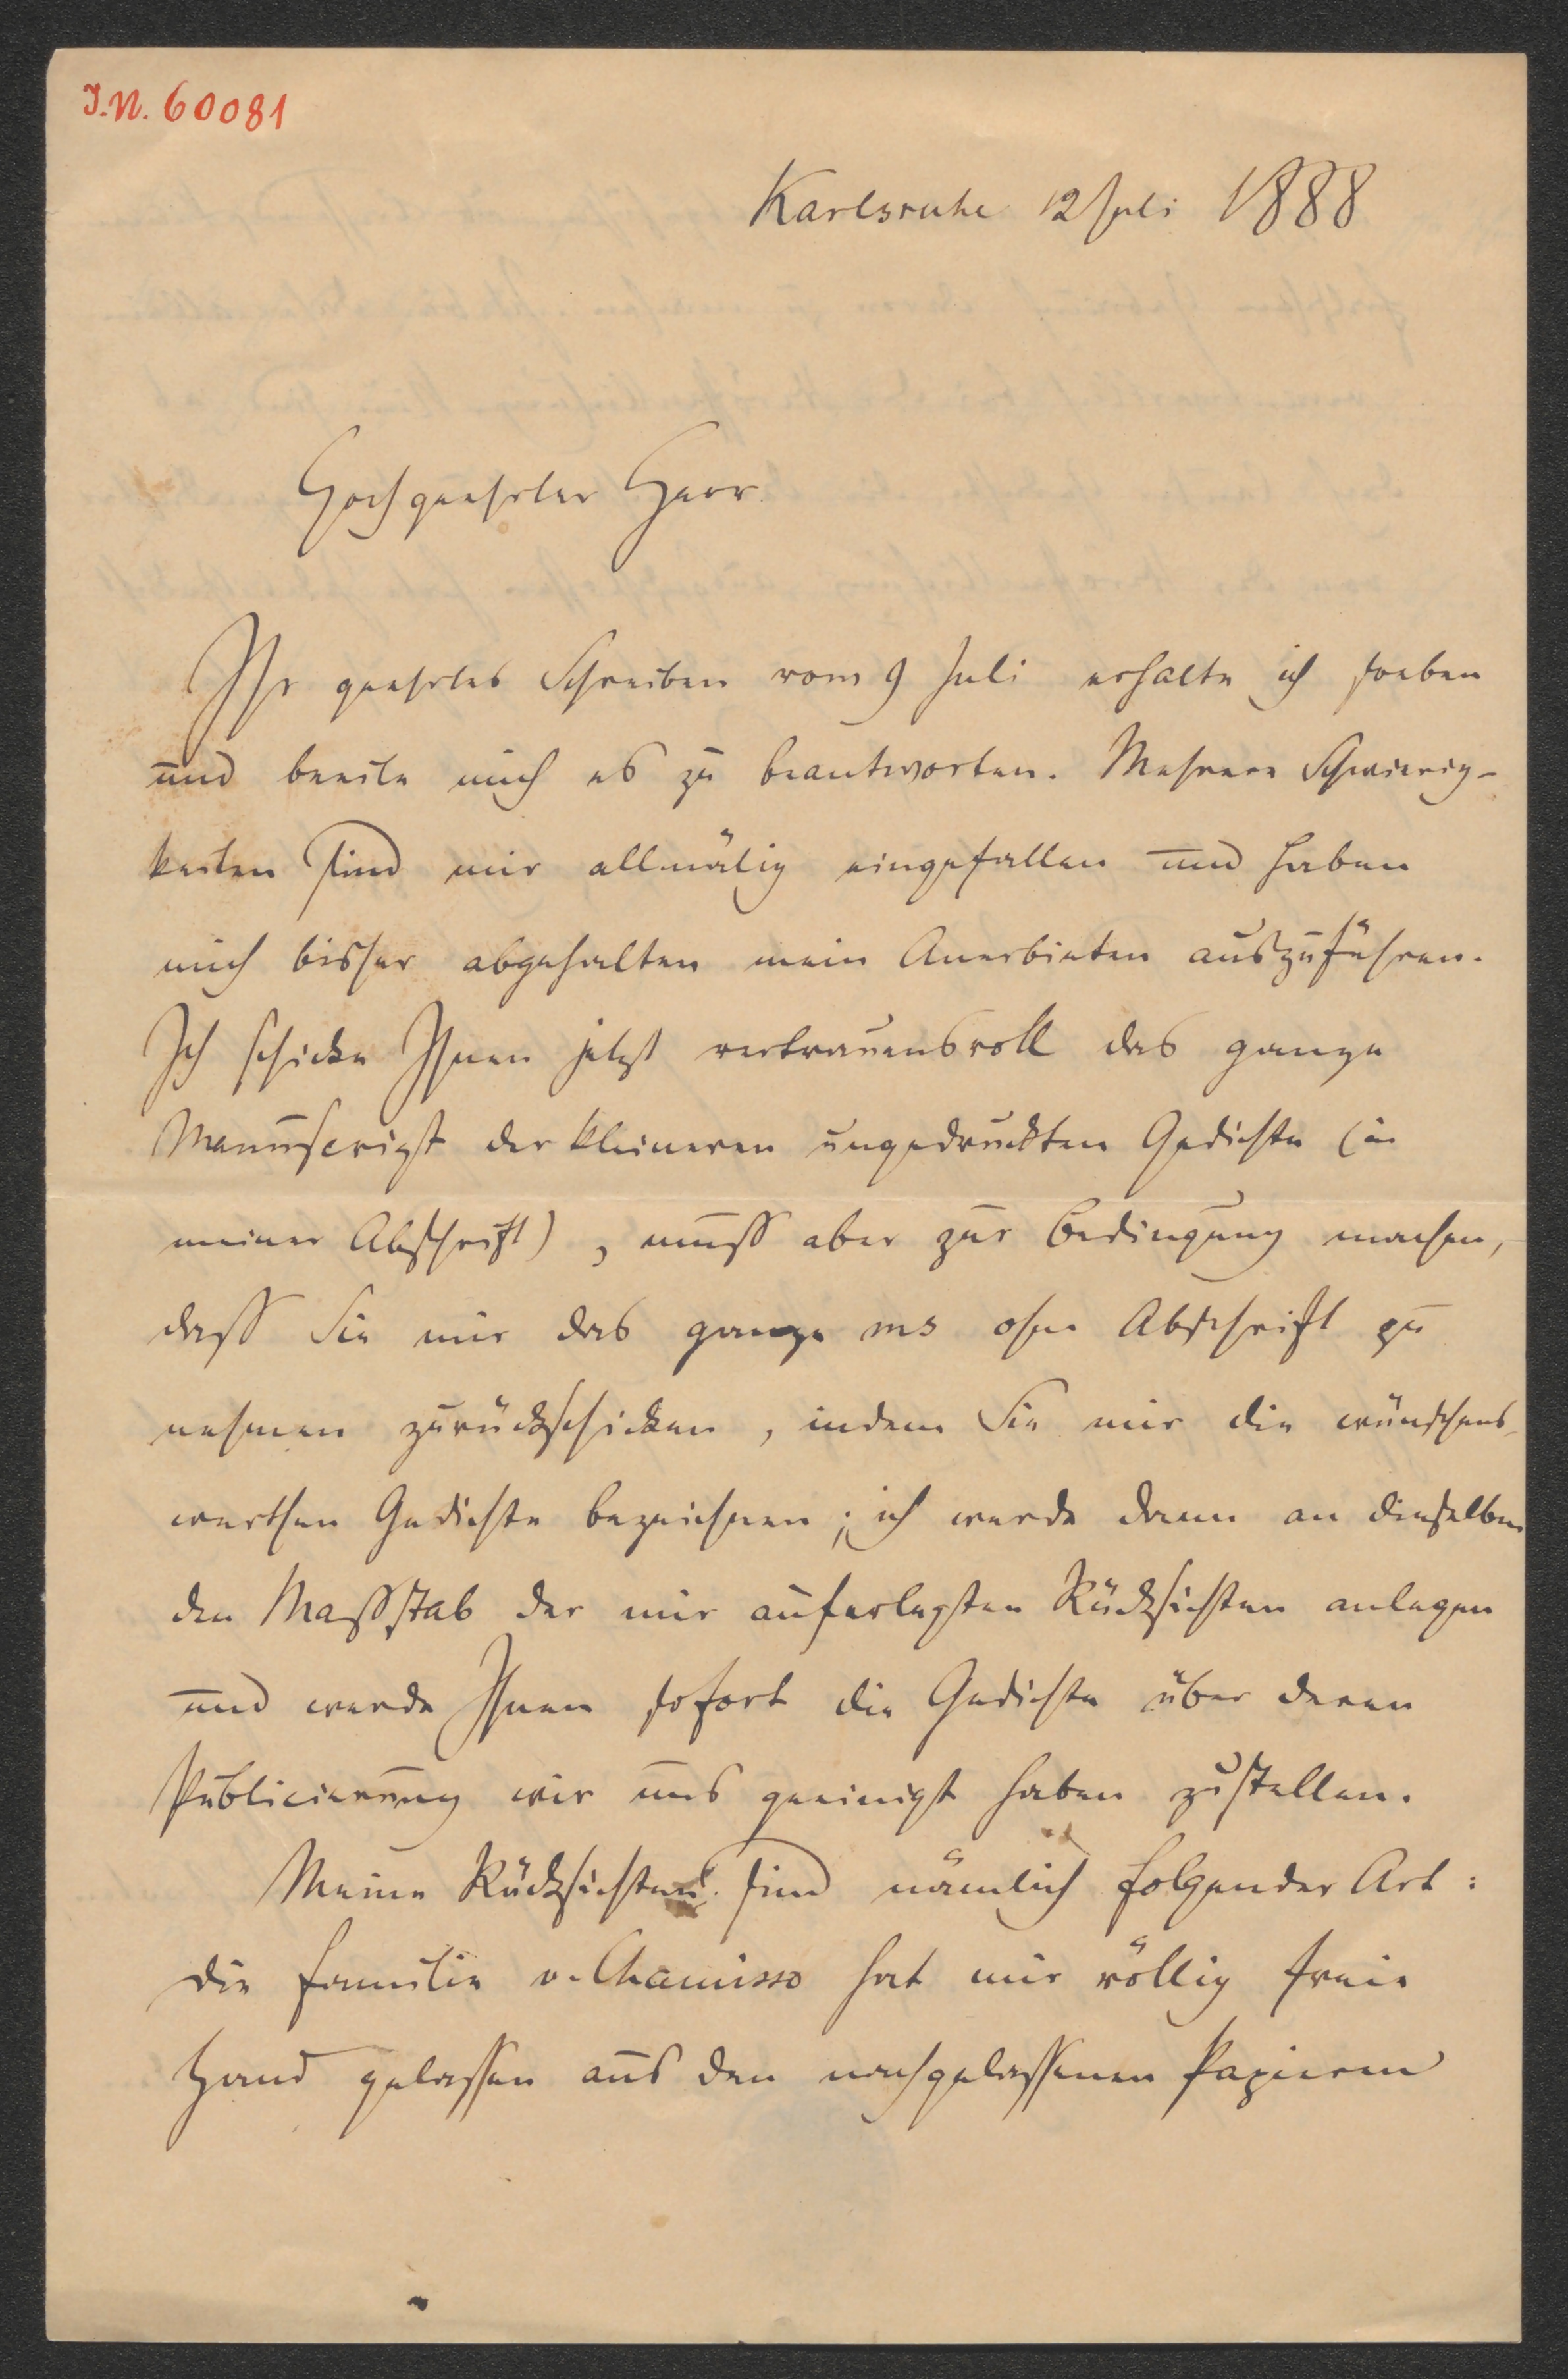 J.N. 60081
Karlsruhe 12 Juli 1888
Hochgeehrter Herr.
Ihr geehrtes Schreiben vom 9 Juli erhalte ich soeben
und beeile mich es zu beantworten. Mehrere Schwierig-
keiten sind mir allmälig eingefallen und haben
mich bisher abgehalten mein Anerbieten auszuführen.
Ich schicke Ihnen jetzt vertrauensvoll das ganze
Manuscript der kleineren ungedruckten Gedichte (in
meiner Abschrift), muss aber zur Bedingung machen,
dass Sie mir das ganze ms ohne Abschrift zu
nehmen zurückschicken, indem Sie mir die wünschens-
werthen Gedichte bezeichnen; ich werde dann an dieselben
den Massstab der mir auferlegten Rücksichten anlegen
und werde Ihnen sofort die Gedichte über deren
Publicierung wir uns geeinigt haben zustellen.
Meine Rücksichten sind nämlich folgender Art:
die Familie v. Chamisso hat mir völlig freie
Hand gelassen aus den nachgelassenen Papieren